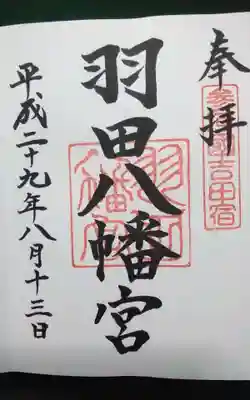 奉拝
吉田宿
羽田八幡宮
平成二十九年八月十三日